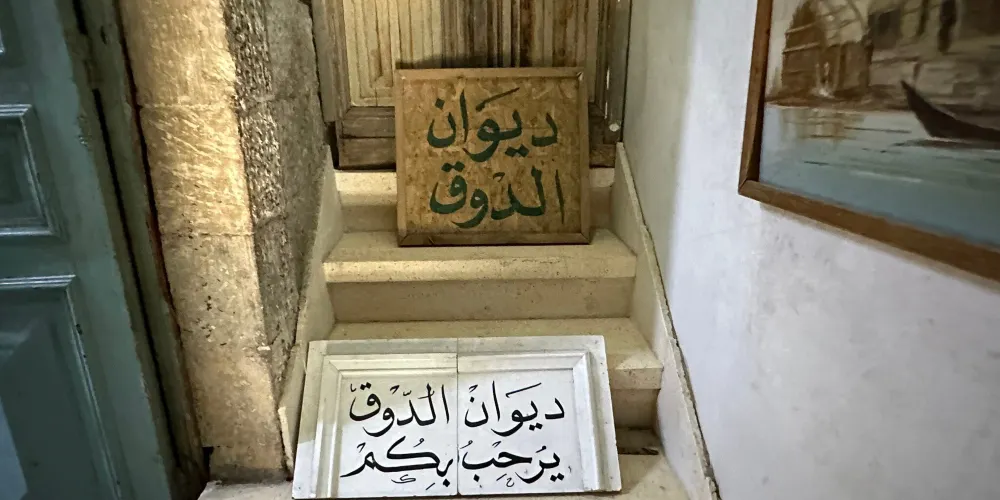 ديوان
الدوق
ديوَانْ الدّوقّ
يُرحِبُ بِكُمْ